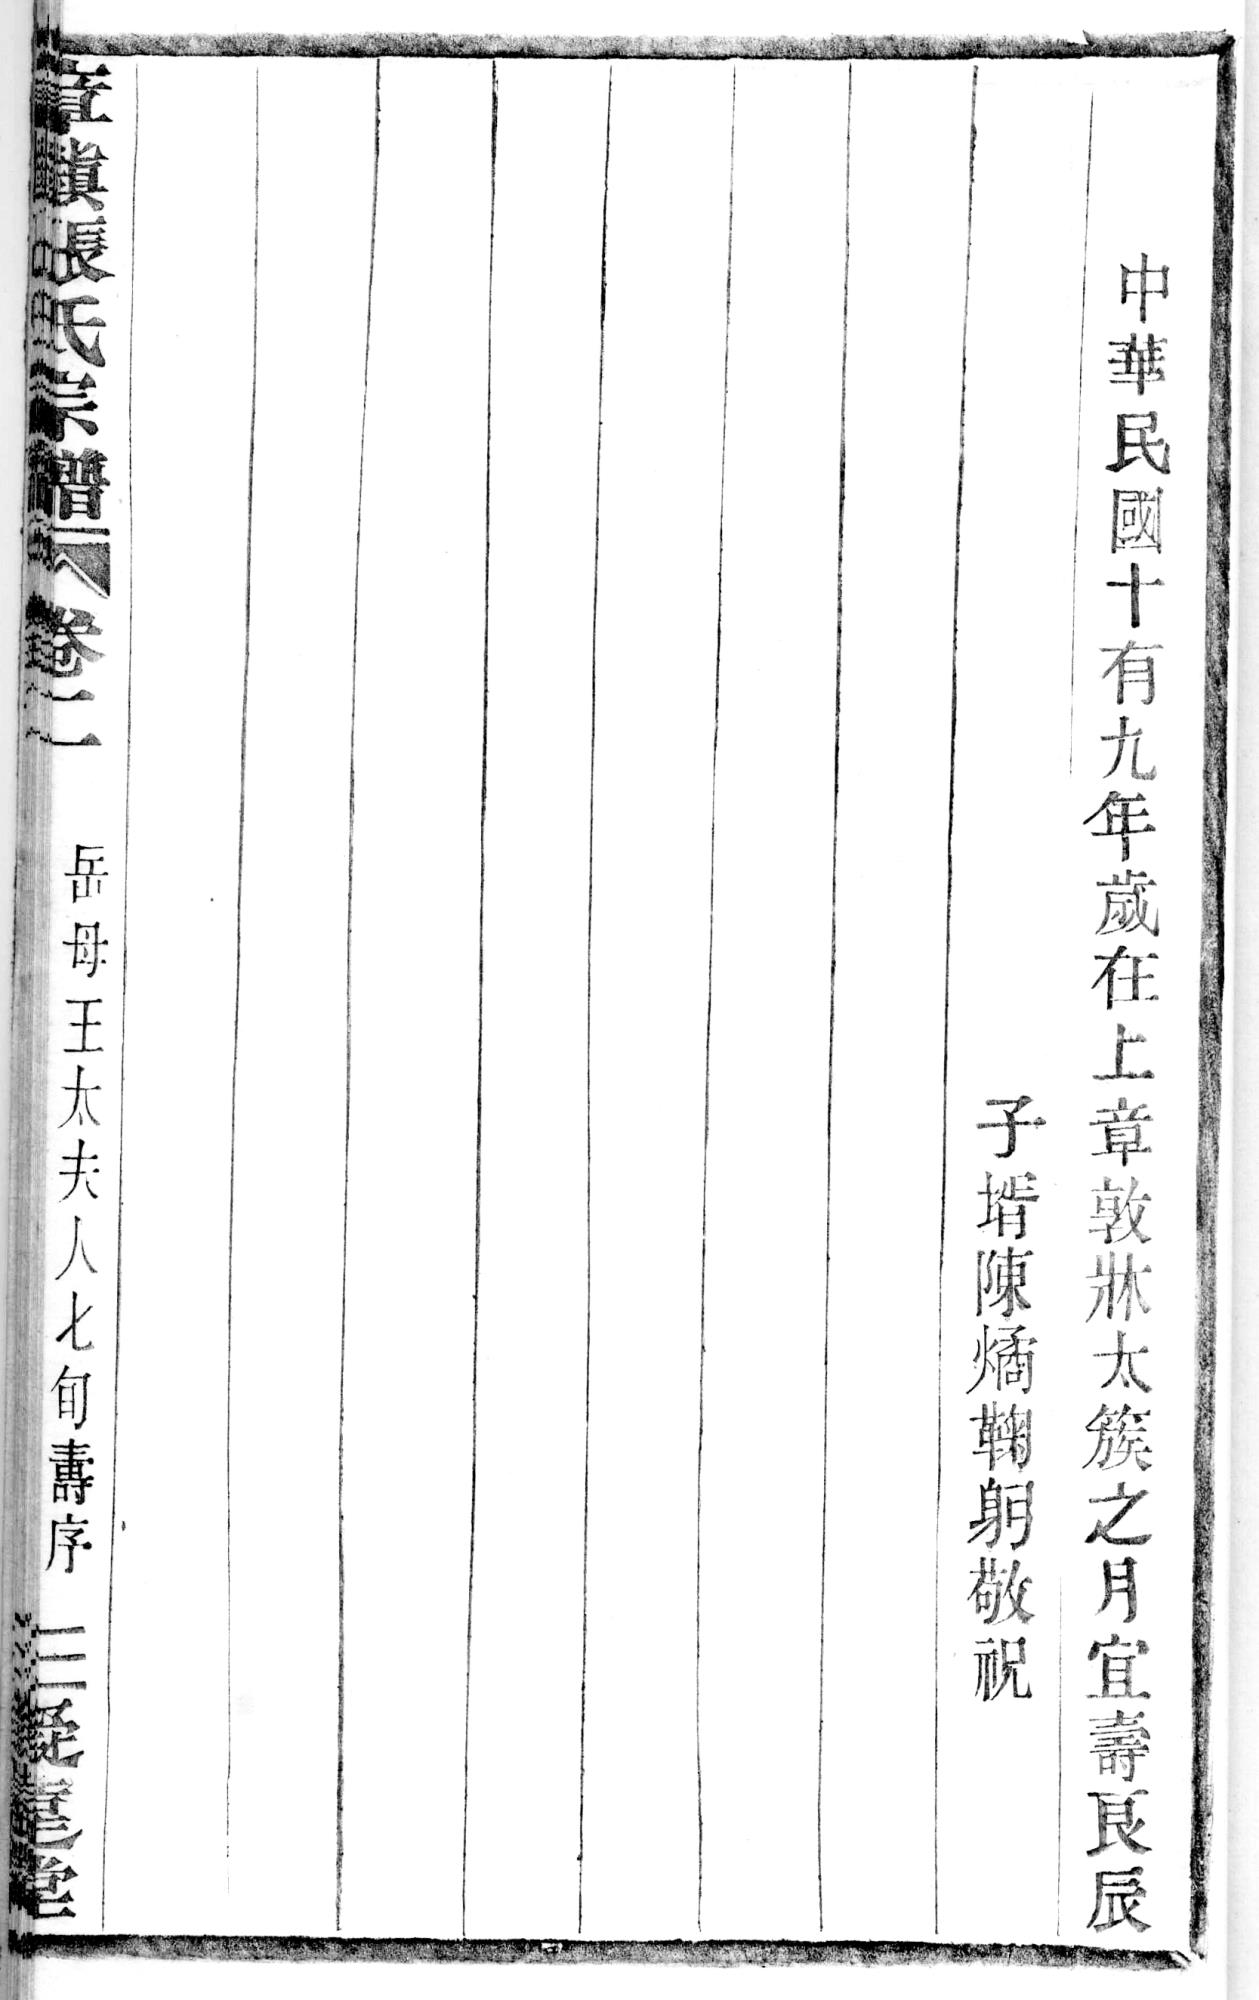 中華民國十有九年歲在上章敦牂太簇之月宜壽良辰
子壻陳燏鞠躬敬祝
章鎮張氏宗譜 卷二 岳母王太夫人七旬壽序 三 堂